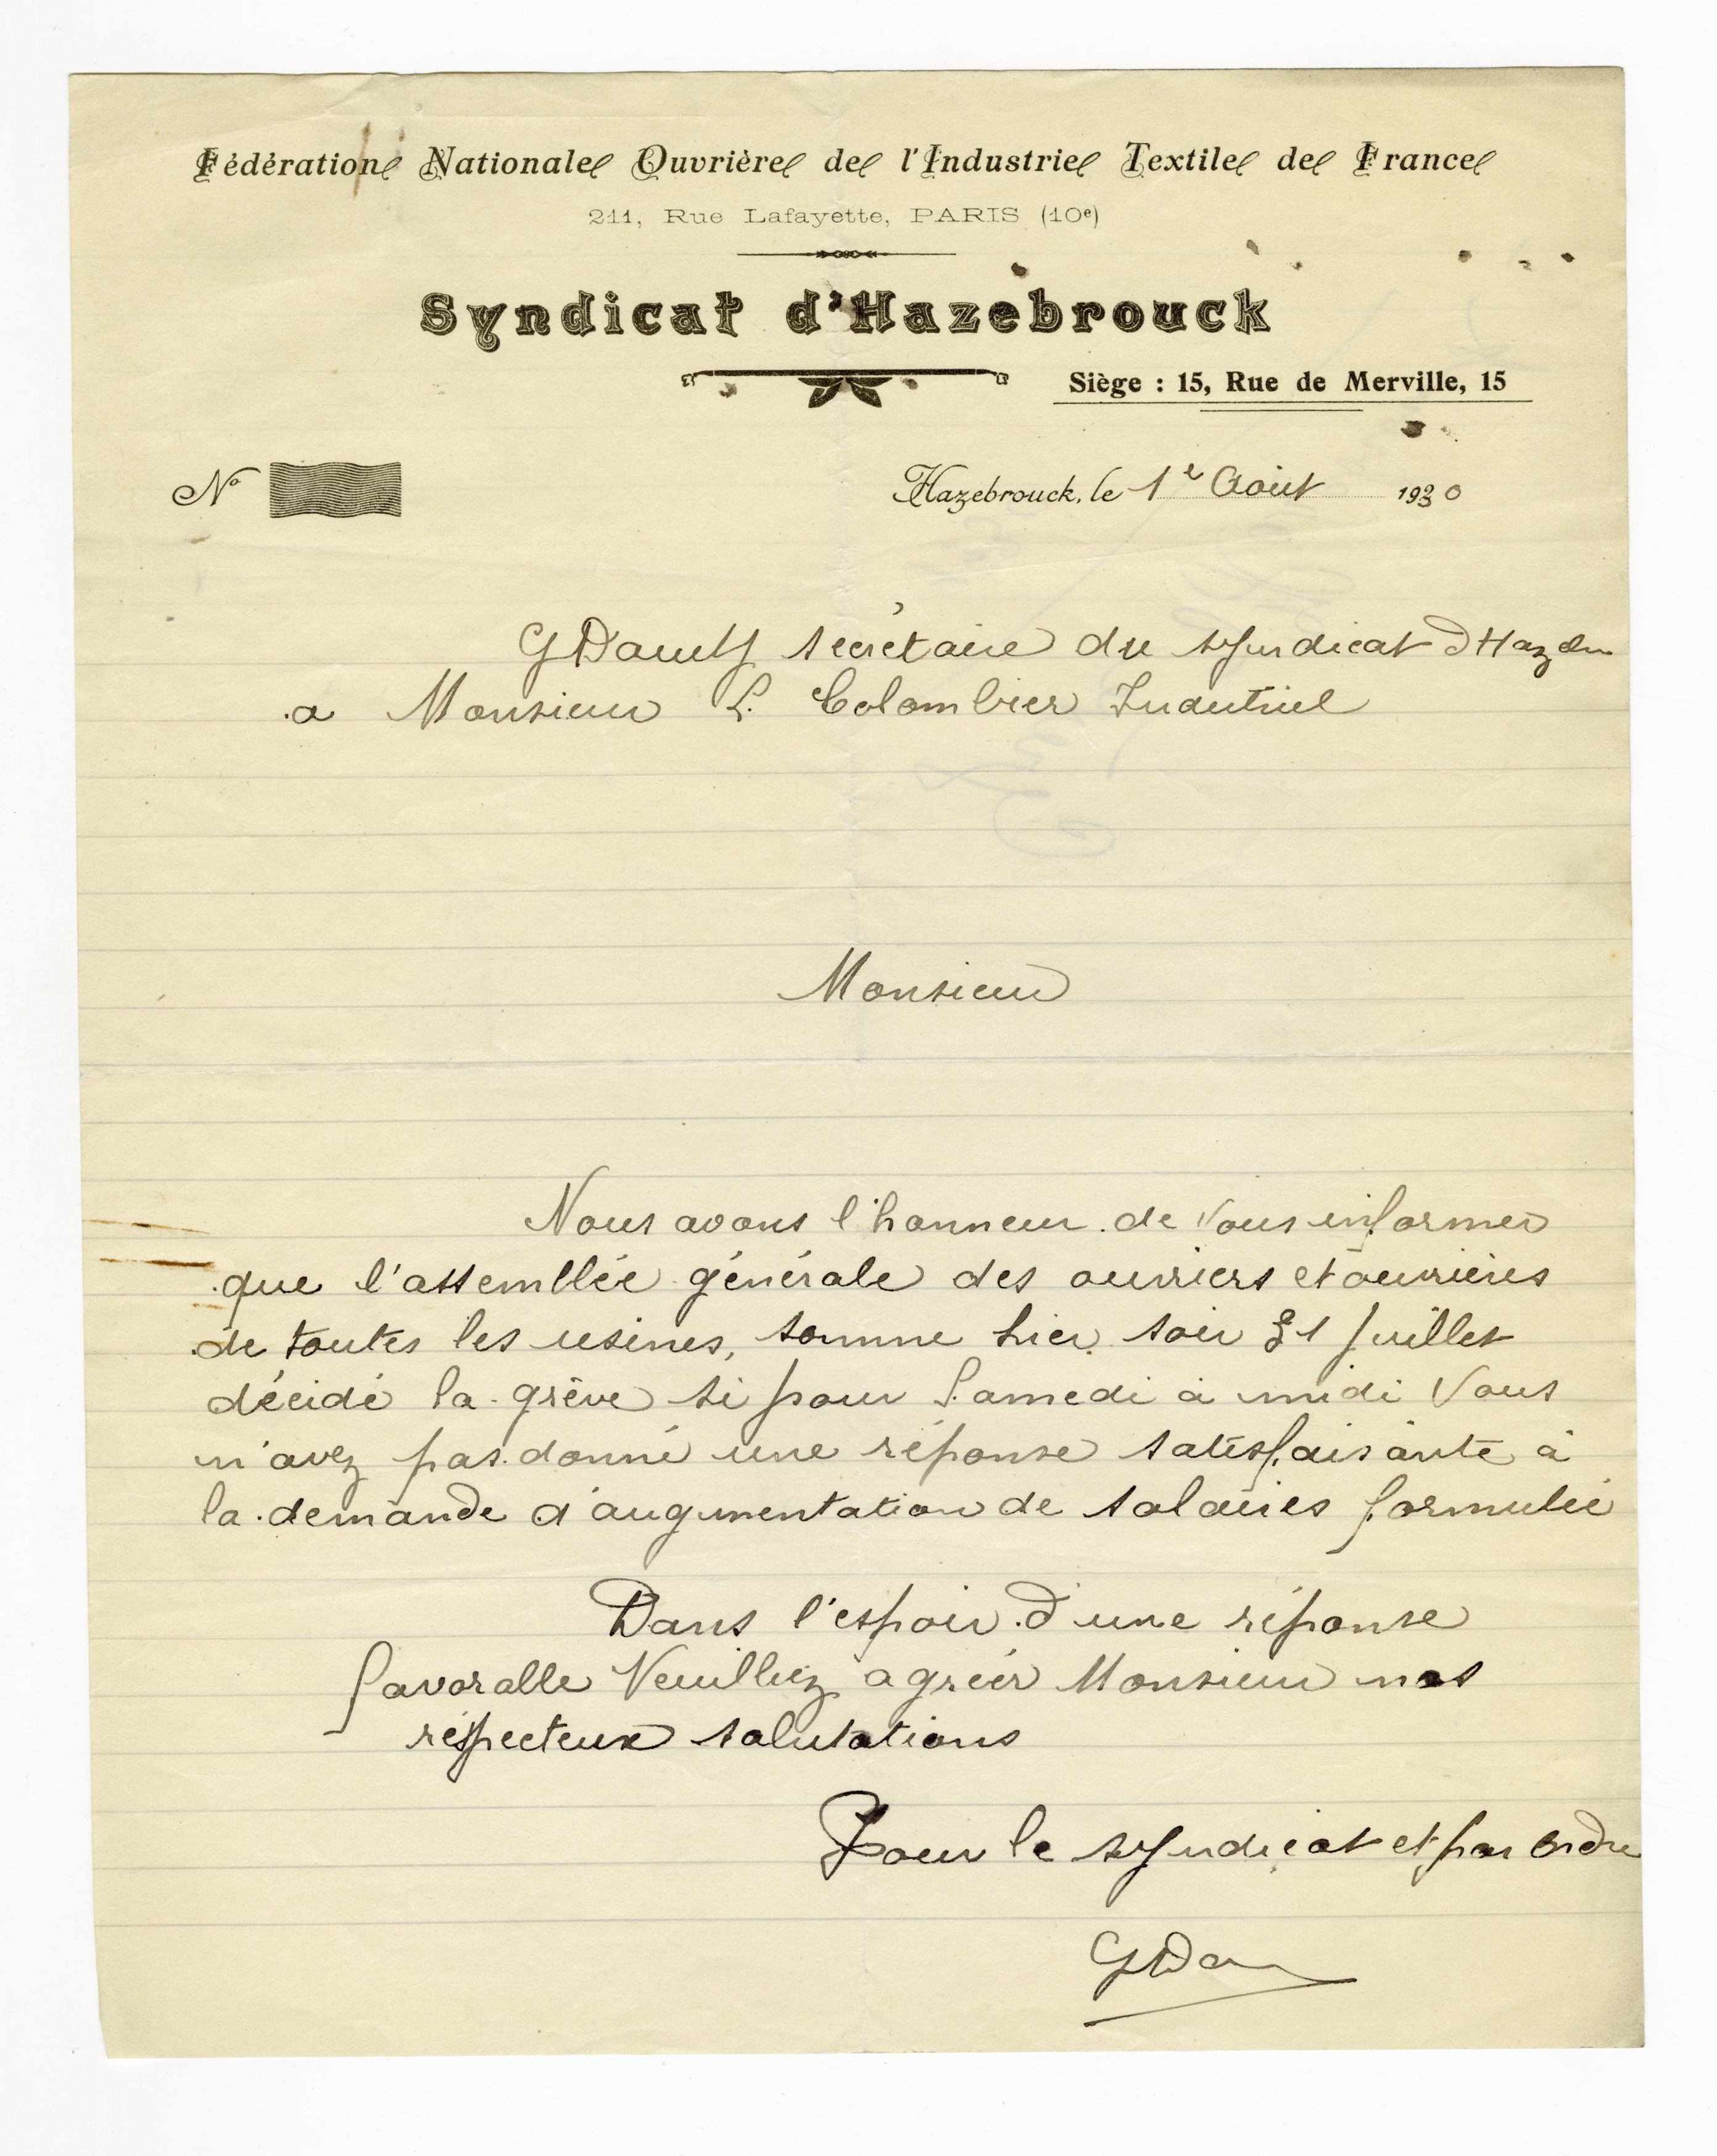 Fédération Nationale Ouvrière de l'Industrie Textile de France
211, Rue Lafayette, PARIS (10e)
Syndicat d'Hazebrouck
Siège : 15, Rue de Merville, 15
No
Hazebrouck, le 1e Août 1930
secrétaire du syndicat d'Haz
a Monsieur L. Colombier Industriel
Monsieur
Nous avons l'honneur de Vous informer
que l'assemblée générale des ouvriers et ouvrières
de toutes les usines, hier soir 31 Juillet
décidé la grève si pour Samedi à midi Vous
n'avez pas donné une réponse satisfaisante à
la demande d'augmentation de salaires formulée
Dans l'espoir d'une réponse
favoralle Veuillez agréer Monsieur nos
respecteux salutations
Pour le syndicat et par Ordre